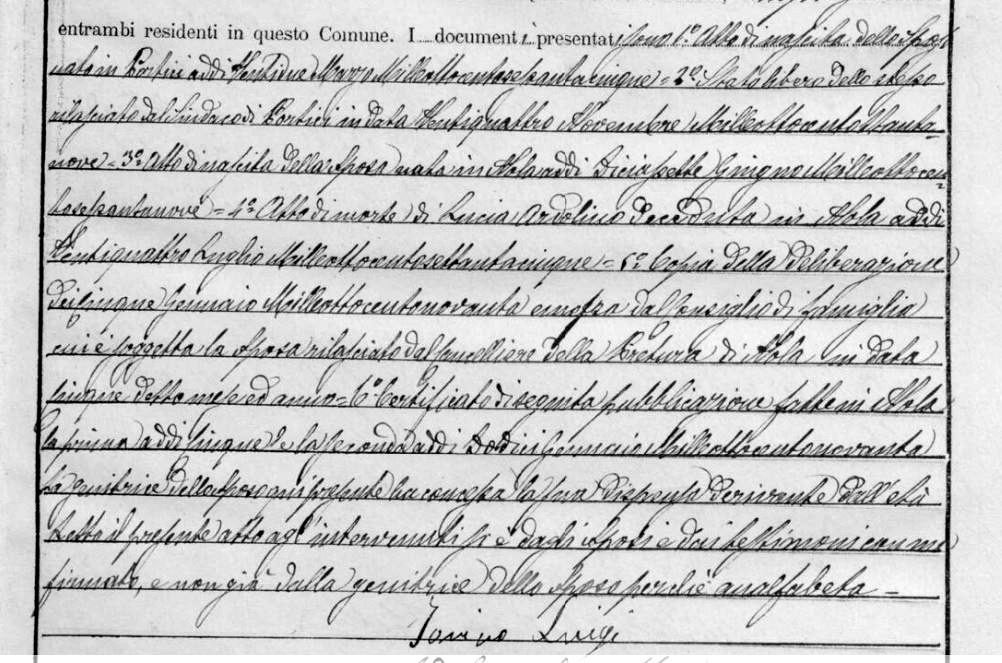 entrambi residenti in questo Comune. I documenti presentati sono 1° Atto di nascita dello sposo
nato in Portici addi Ventidue Marzo Milleottocentosessantacinque = 2° Stato libero dello stesso
rilasciato dal Sindaco di Portici in data Ventiquattro Novembre Milleottocentottanta-
nove = 3° Atto di nascita della sposa nata in Nola addi Diciassette Giugno Milleottocen-
tosessantanove = 4° Atto di morte di Lucia Ardolino deceduta in Nola addi
Ventiquattro Luglio Milleottocentosettantacinque = 5° Copia della deliberazione
del cinque Gennaio Milleottocentonovanta emessa dal Consiglio di famiglia
cui è soggetta la sposa rilasciato dal Cancelliere della Pretura di Nola in data
cinque detto mese ed anno = 6° Certificato di seguita pubblicazione fatte in Nola
la prima addi cinque e la seconda addi dodici Gennaio Milleottocentonovanta
La genitrice dello sposo qui presente ha concessa la sua dispensa derivante dall'età
Letto il presente atto agl'intervenuti si è dagli sposi e dai testimoni con me
firmato, e non già dalla genitrice dello sposo perchè analfabeta =
Luigi